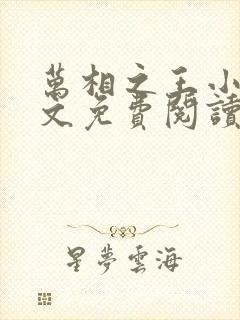 萬相之王小
文免費閱讀
星夢雲海